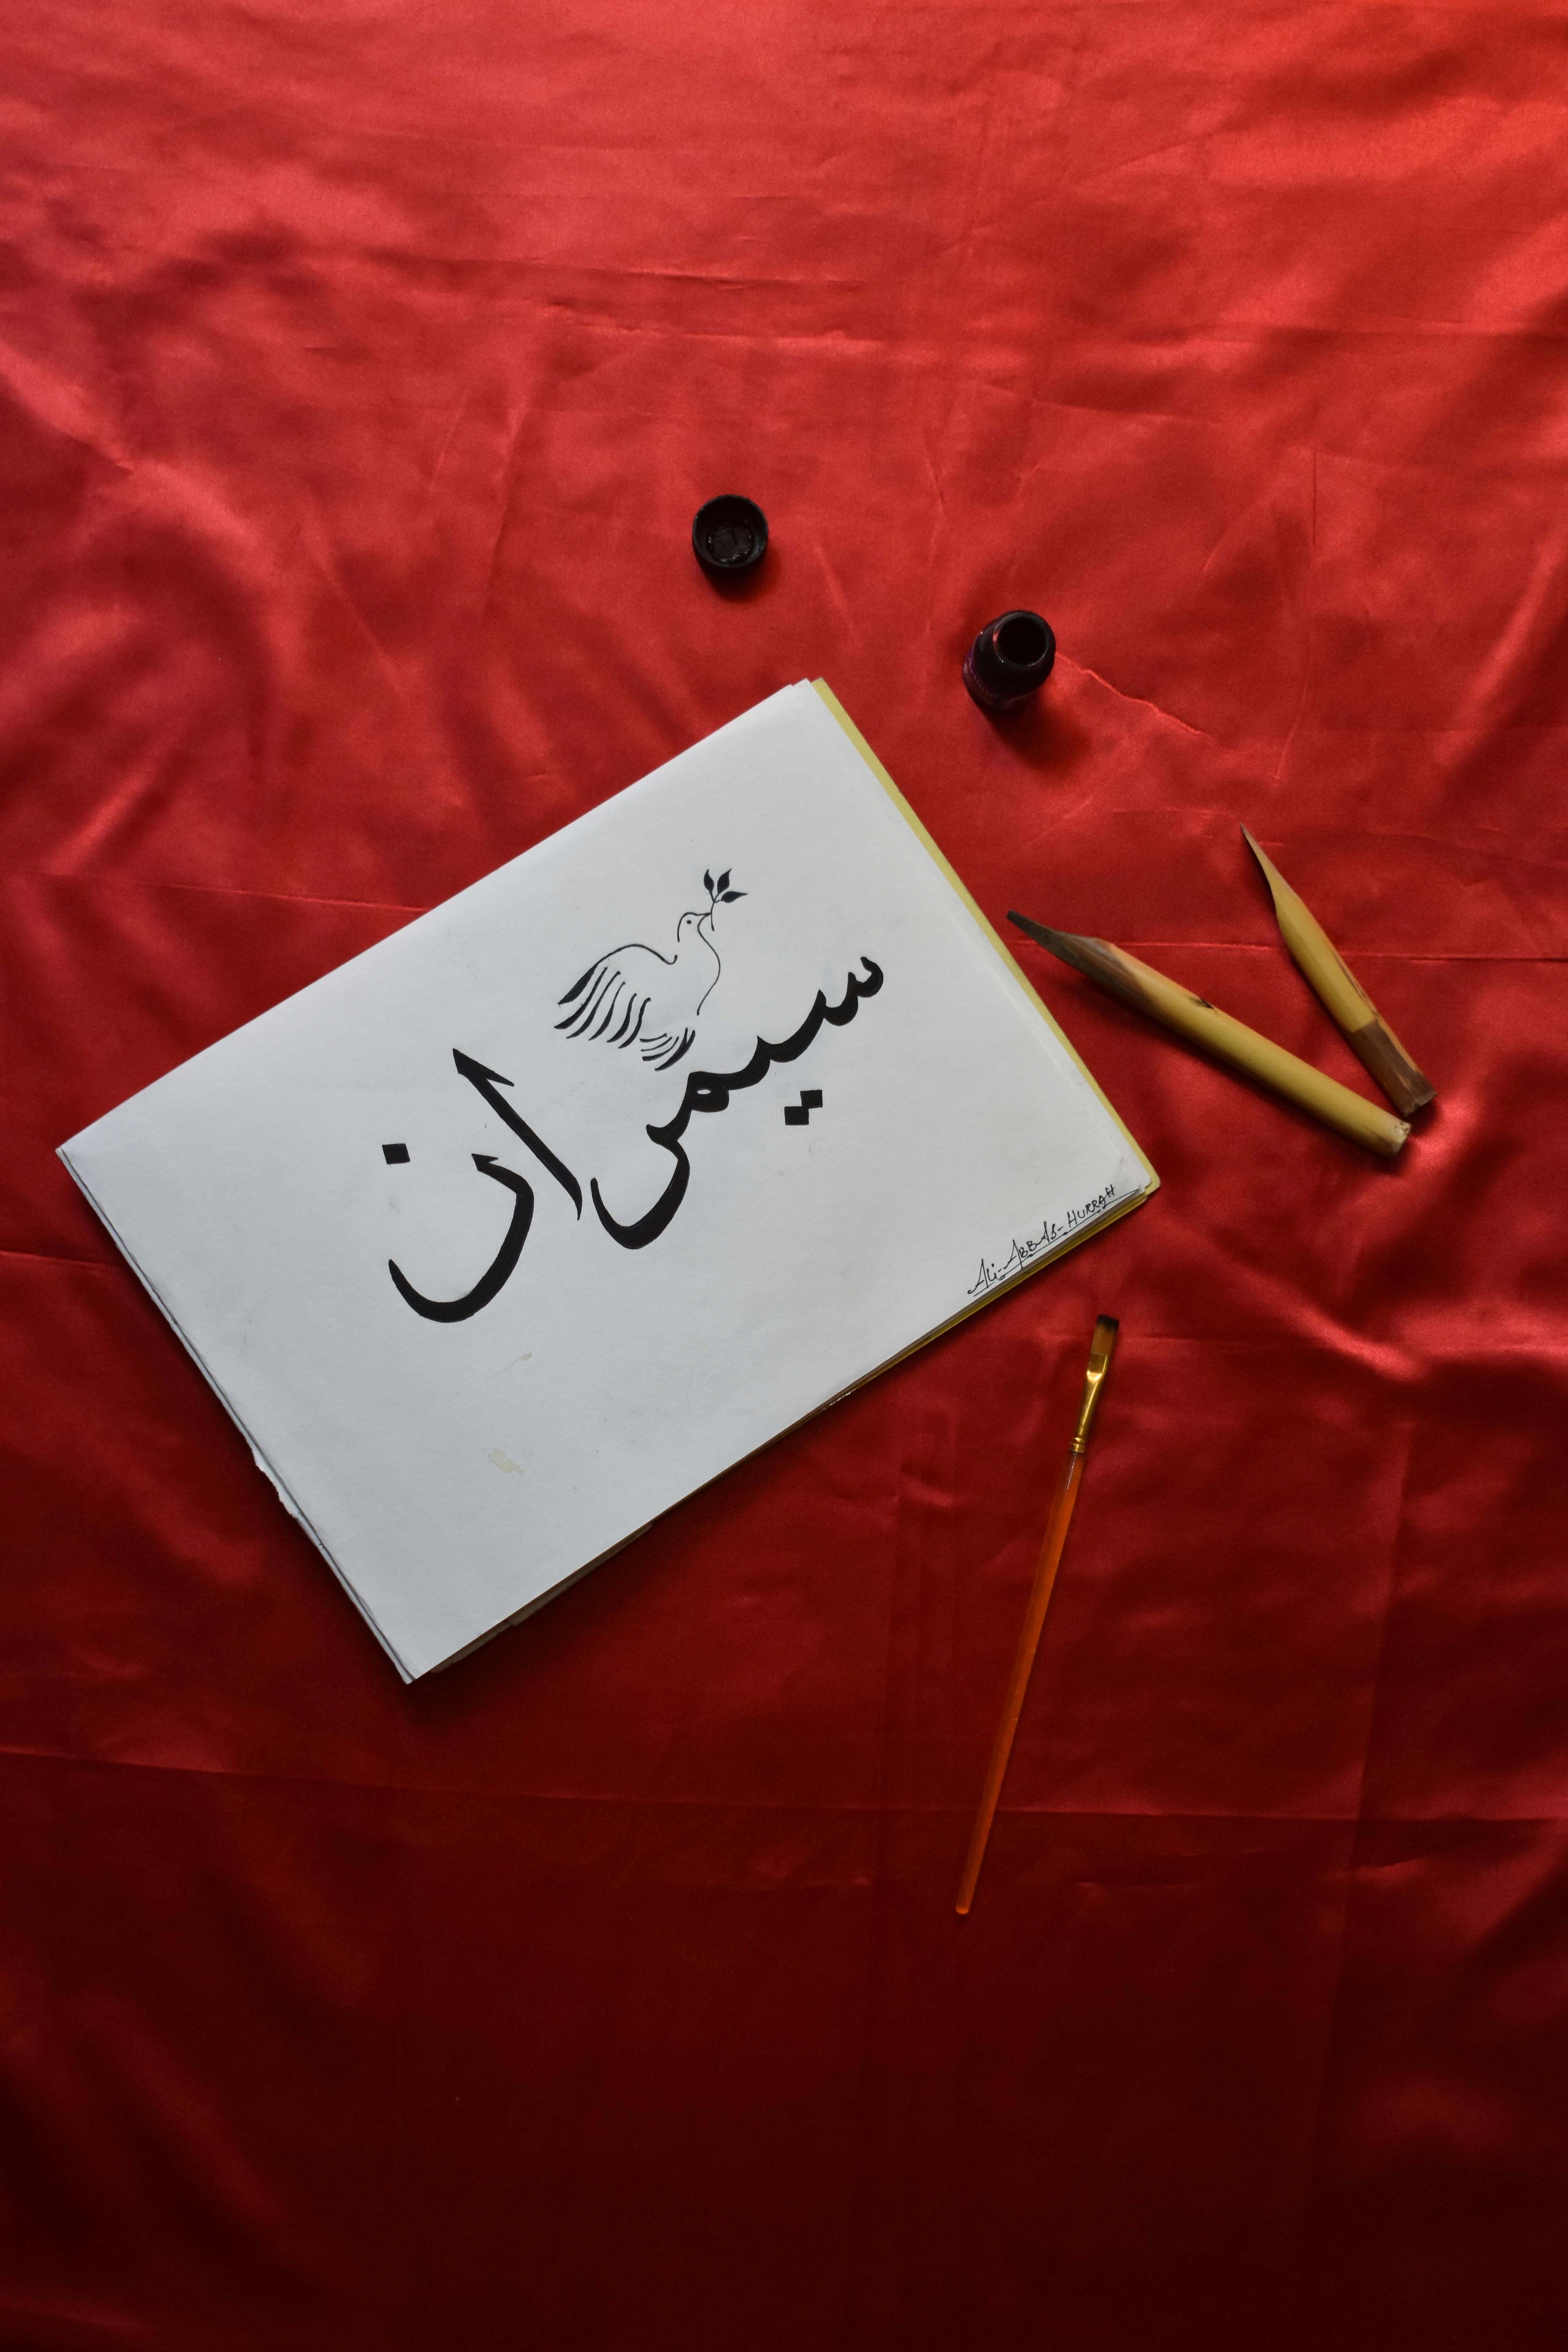 سیمران
Ali-ABBAS-HURRAH